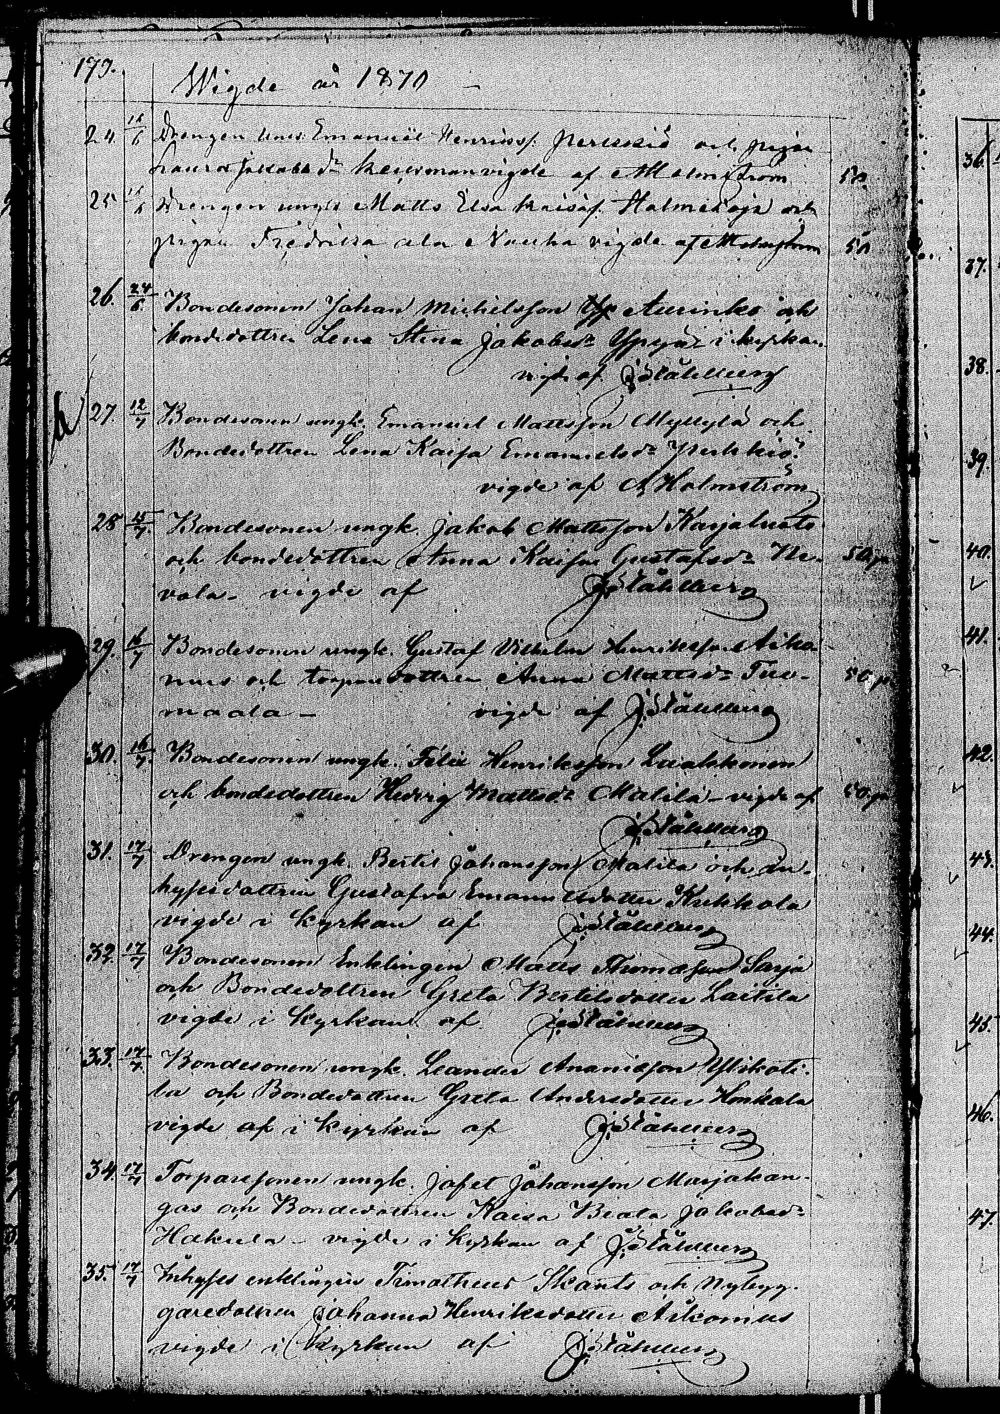 179.
Wigde år 1870
24 Drengen Emanuel Henrikss. Perkkiö och pigan
Laura Jakobsdr vigde af A Holmström 50
25 Drengen ungk Matts Elsa Kaisas. och
pigan Fredrika vigde af A Holmström 50
26. 24/6. Bondesonen Johan Michelsson Aurinko och
bondedottren Lena Stina Jakobsdr Yppyä i kyrkan
vigde af J. Ståhlberg
27. 12/7 Bondesonen ungk. Emanuel Mattsson Myllylä och
Bondedottren Lena Kaisa Emanuelsdr Perkkiö.
vigde af A Holmström
28 15/7. Bondesonen ungk. Jakob Mattsson Karjaluoto
och bondedottren Anna Kaisa Gustafsdr Ne- 50 p
vala - vigde af J. Ståhlberg
29. 16/7 Bondesonen ungk. Gustaf Vilhelm Henriksson Aiko-
nus och torparedottren Anna Mattsdr Tuo- 50 p
maala - vigde af J. Ståhlberg
30. 16/7. Bondesonen ungk. Felix Henriksson Laakkonen
och bondedottren Hedvig Mattsdr Matila - vigde af 50 p
J. Ståhlberg
31. 17/7 Drengen ungk. Bertil Johansson Matila och in-
hysesdottren Gustafva Emanuelsdotter Kukkola
vigde i Kyrkan af J. Ståhlberg
32. 17/7 Bondesonen Enklingen Matts Thomasson Sarja
och Bondedottren Greta Bertilsdotter Laitila
vigde i Kyrkan af J. Ståhlberg
33. 17/7. Bondesonen ungk. Leander Ananiasson Yliskoti-
la och Bondedottren Greta Andersdotter Honkala
vigde af i Kyrkan af J. Ståhlberg
34. 17/7 Torparesonen ungk. Jafet Johansson Marjakan-
gas och Bondedottren Kaisa Beata Jakobsdr
Hakula - vigde i kyrkan af J. Ståhlberg
35. 17/7 Inhyses enklingen Timotheus Skants och Nybyg-
garedottren Johanna Henriksdotter Aikonius
vigde i Kyrkan af J. Ståhlberg
36.
37.
38.
39.
40.
41.
42.
43.
44.
45.
46.
47.